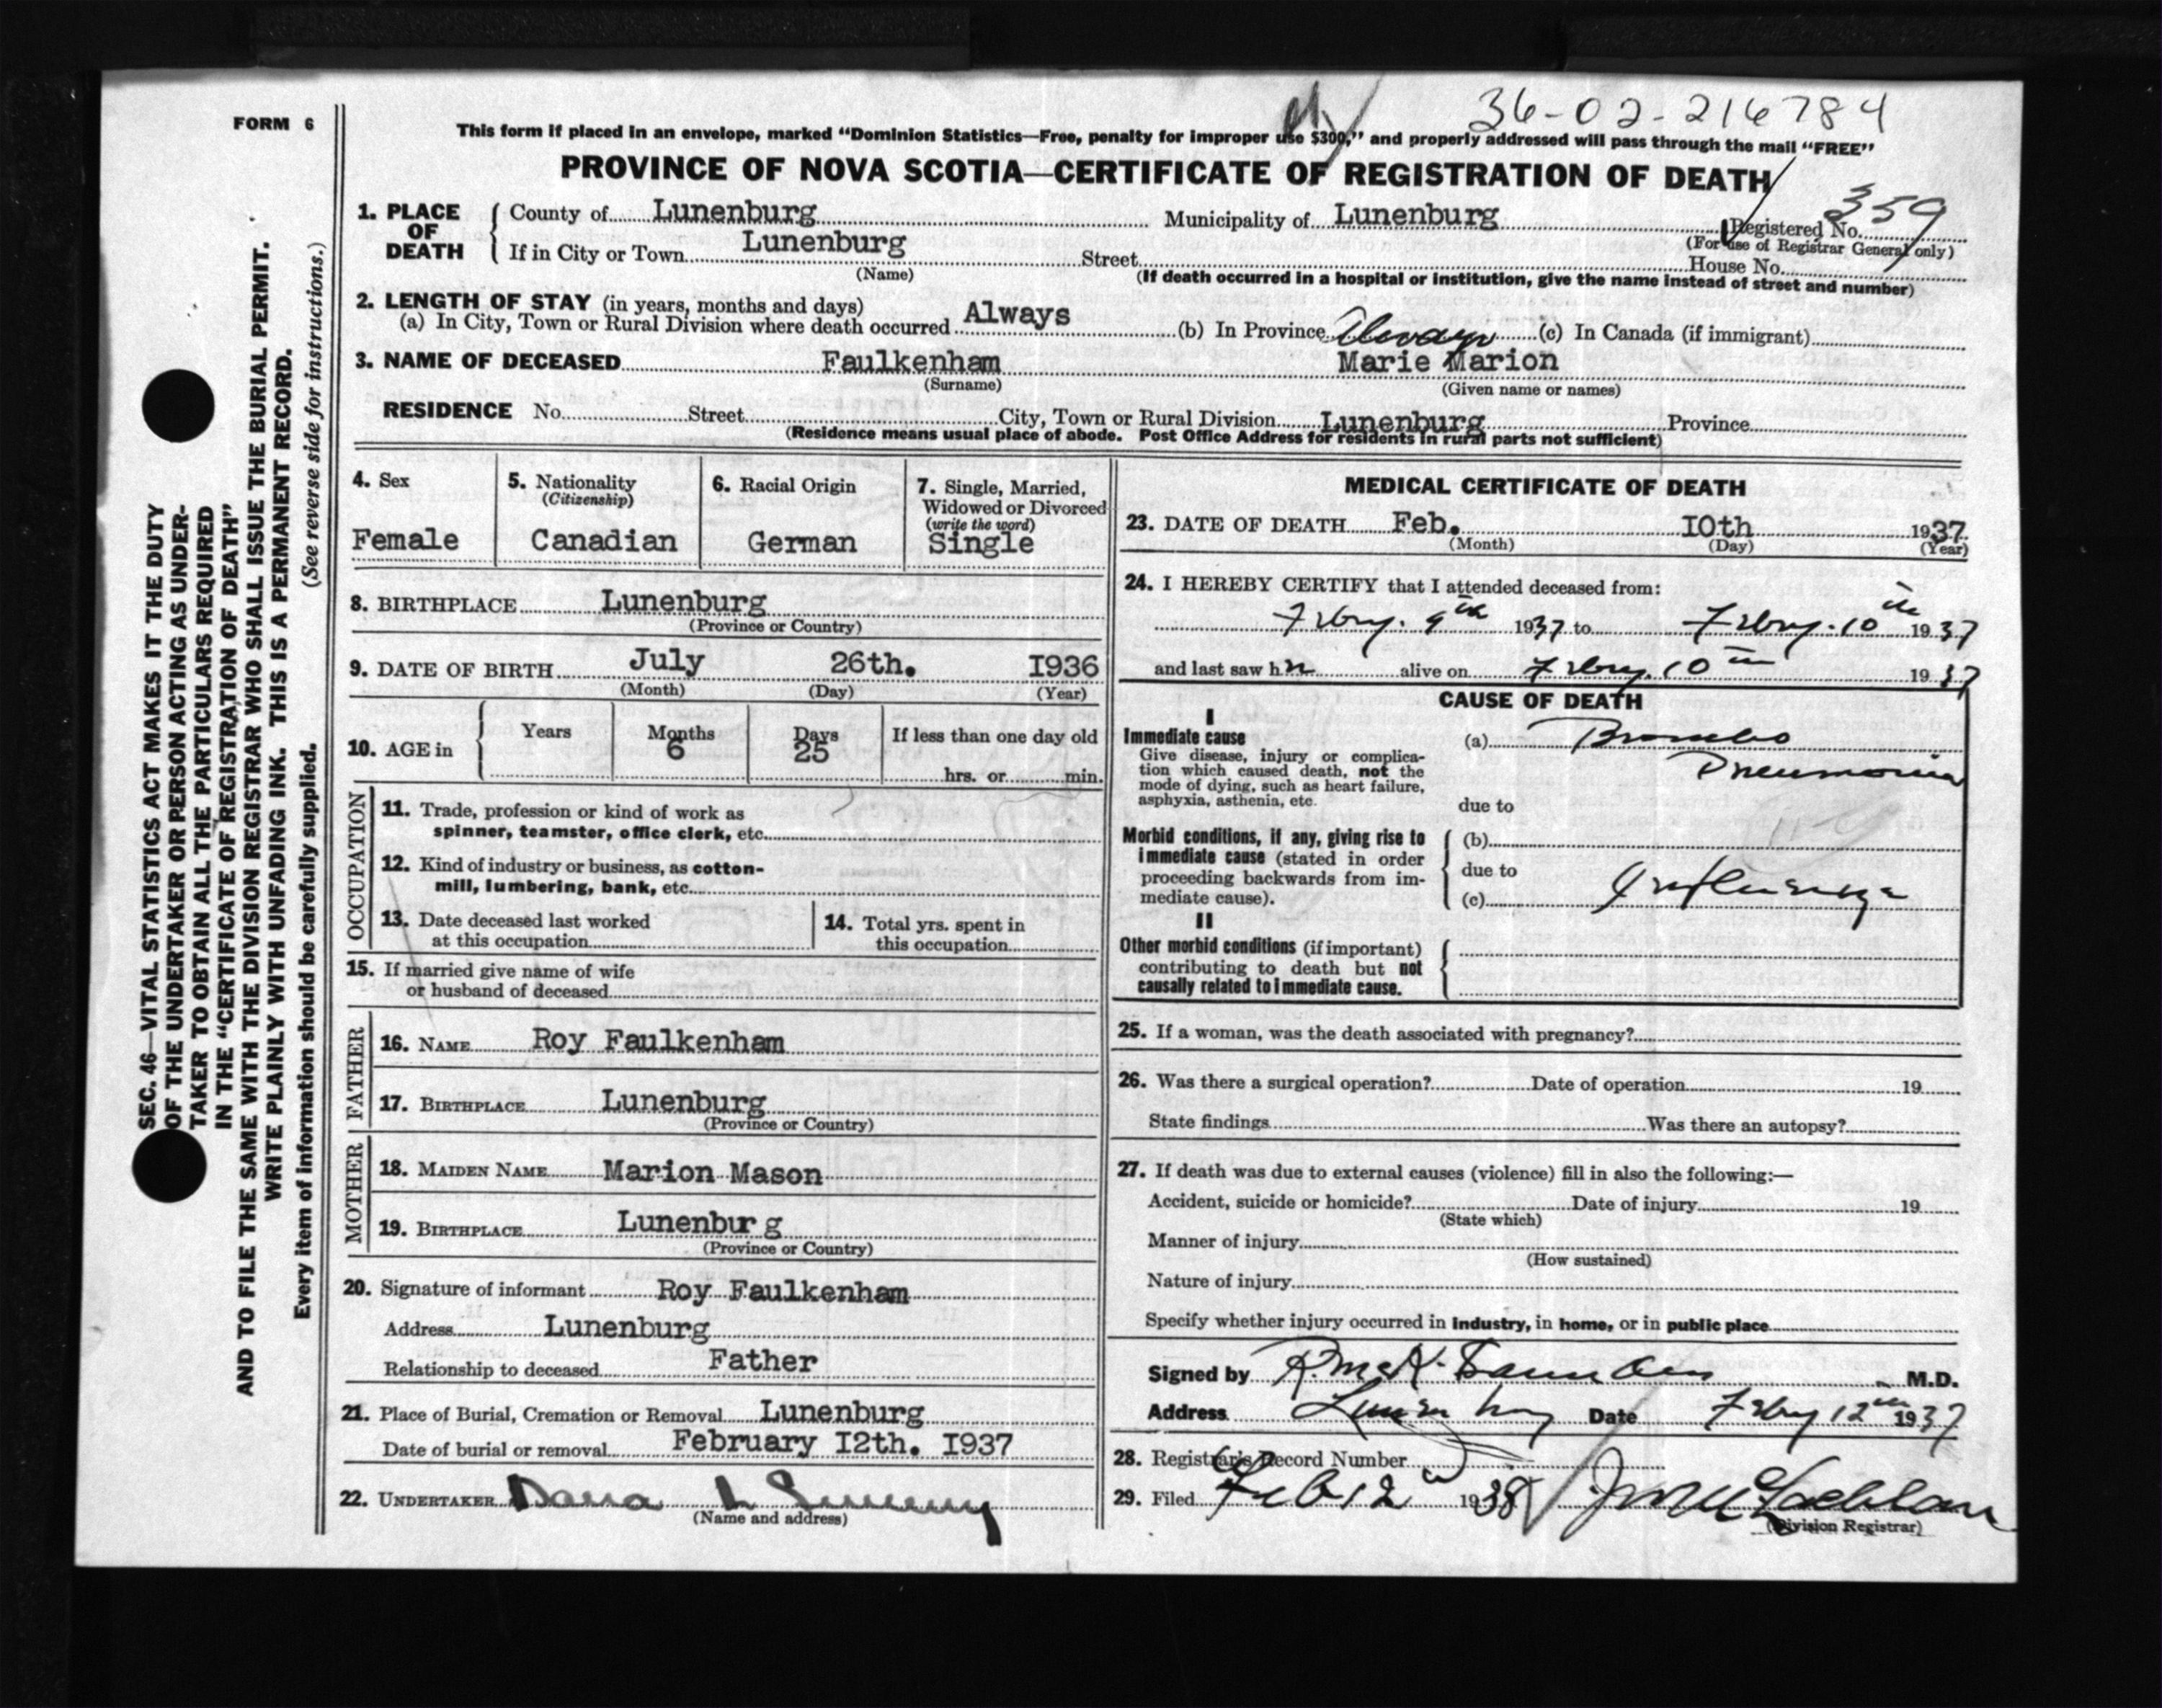 36-02-216784
FORM 6
This form if placed in an envelope, marked "Dominion Statistics—Free, penalty for improper use $300," and properly addressed will pass through the mail "FREE"
PROVINCE OF NOVA SCOTIA—CERTIFICATE OF REGISTRATION OF DEATH
359
1. PLACE OF DEATH { County of Lunenburg Municipality of Lunenburg Registered No.
(For use of Registrar General only)
If in City or Town Lunenburg Street House No.
(Name) (If death occurred in a hospital or institution, give the name instead of street and number)
2. LENGTH OF STAY (in years, months and days)
(a) In City, Town or Rural Division where death occurred Always (b) In Province Always (c) In Canada (if immigrant)
3. NAME OF DECEASED Faulkenham Marie Marion
(Surname) (Given name or names)
RESIDENCE No. Street City, Town or Rural Division Lunenburg Province
(Residence means usual place of abode. Post Office Address for residents in rural parts not sufficient)
4. Sex
Female
5. Nationality
(Citizenship)
Canadian
6. Racial Origin
German
7. Single, Married,
Widowed or Divorced
(write the word)
Single
8. BIRTHPLACE Lunenburg
(Province or Country)
9. DATE OF BIRTH July 26th. I936
(Month) (Day) (Year)
10. AGE in { Years Months Days If less than one day old
6 25
hrs. or min.
OCCUPATION
11. Trade, profession or kind of work as
spinner, teamster, office clerk, etc.
12. Kind of industry or business, as cotton-
mill, lumbering, bank, etc.
13. Date deceased last worked
at this occupation
14. Total yrs. spent in
this occupation
15. If married give name of wife
or husband of deceased
FATHER
16. NAME Roy Faulkenham
17. BIRTHPLACE Lunenburg
(Province or Country)
MOTHER
18. MAIDEN NAME Marion Mason
19. BIRTHPLACE Lunenbur g
(Province or Country)
20. Signature of informant Roy Faulkenham
Address Lunenburg
Relationship to deceased Father
21. Place of Burial, Cremation or Removal Lunenburg
Date of burial or removal February I2th. I937
22. UNDERTAKER Dana L Sweeny
(Name and address)
MEDICAL CERTIFICATE OF DEATH
23. DATE OF DEATH Feb. I0th 1937
(Month) (Day) (Year)
24. I HEREBY CERTIFY that I attended deceased from:
Febry. 9th 1937 to Febry. 10th 1937
and last saw her alive on Febry. 10th 1937
CAUSE OF DEATH
I
Immediate cause
Give disease, injury or complica-
tion which caused death, not the
mode of dying, such as heart failure,
asphyxia, asthenia, etc.
(a) Broncho
Pneumonia
due to
Morbid conditions, if any, giving rise to
immediate cause (stated in order
proceeding backwards from im-
mediate cause).
(b)
due to
(c) Influenza
II
Other morbid conditions (if important)
contributing to death but not
causally related to immediate cause.
25. If a woman, was the death associated with pregnancy?
26. Was there a surgical operation? Date of operation 19
State findings Was there an autopsy?
27. If death was due to external causes (violence) fill in also the following:—
Accident, suicide or homicide? Date of injury 19
(State which)
Manner of injury
(How sustained)
Nature of injury
Specify whether injury occurred in industry, in home, or in public place
Signed by R. McK. Saunders M.D.
Address Lunenburg Date Febry 12th 1937
28. Registrar's Record Number
29. Filed Feb 12 1938
(Division Registrar)
SEC. 46—VITAL STATISTICS ACT MAKES IT THE DUTY
OF THE UNDERTAKER OR PERSON ACTING AS UNDER-
TAKER TO OBTAIN ALL THE PARTICULARS REQUIRED
IN THE "CERTIFICATE OF REGISTRATION OF DEATH"
AND TO FILE THE SAME WITH THE DIVISION REGISTRAR WHO SHALL ISSUE THE BURIAL PERMIT.
WRITE PLAINLY WITH UNFADING INK. THIS IS A PERMANENT RECORD.
Every item of information should be carefully supplied. (See reverse side for instructions.)